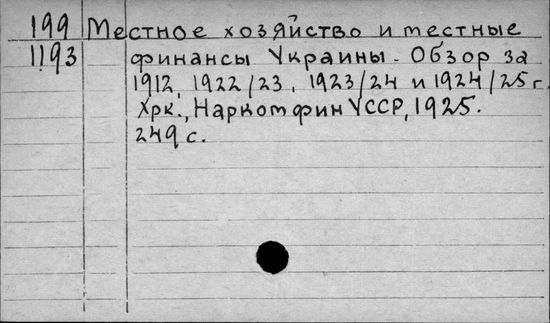 199 Местное хозяйство и местные
1193 финансы Украины. Обзор за
1912, 1922/23, 1923/24 и 1924/25 г.
Хрк., Наркомфин УССР, 1925.
249 с.